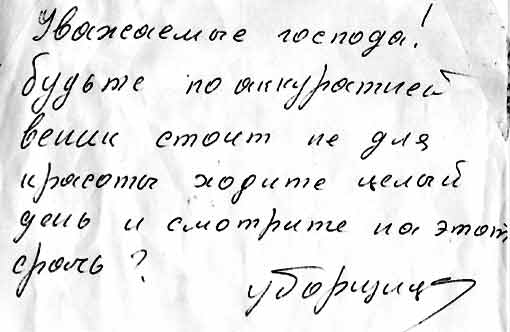 Уважаемые господа!
будьте по аккуратней
веник стоит не для
красоты ходите целый
день и смотрите на этот
срачь?
уборщица